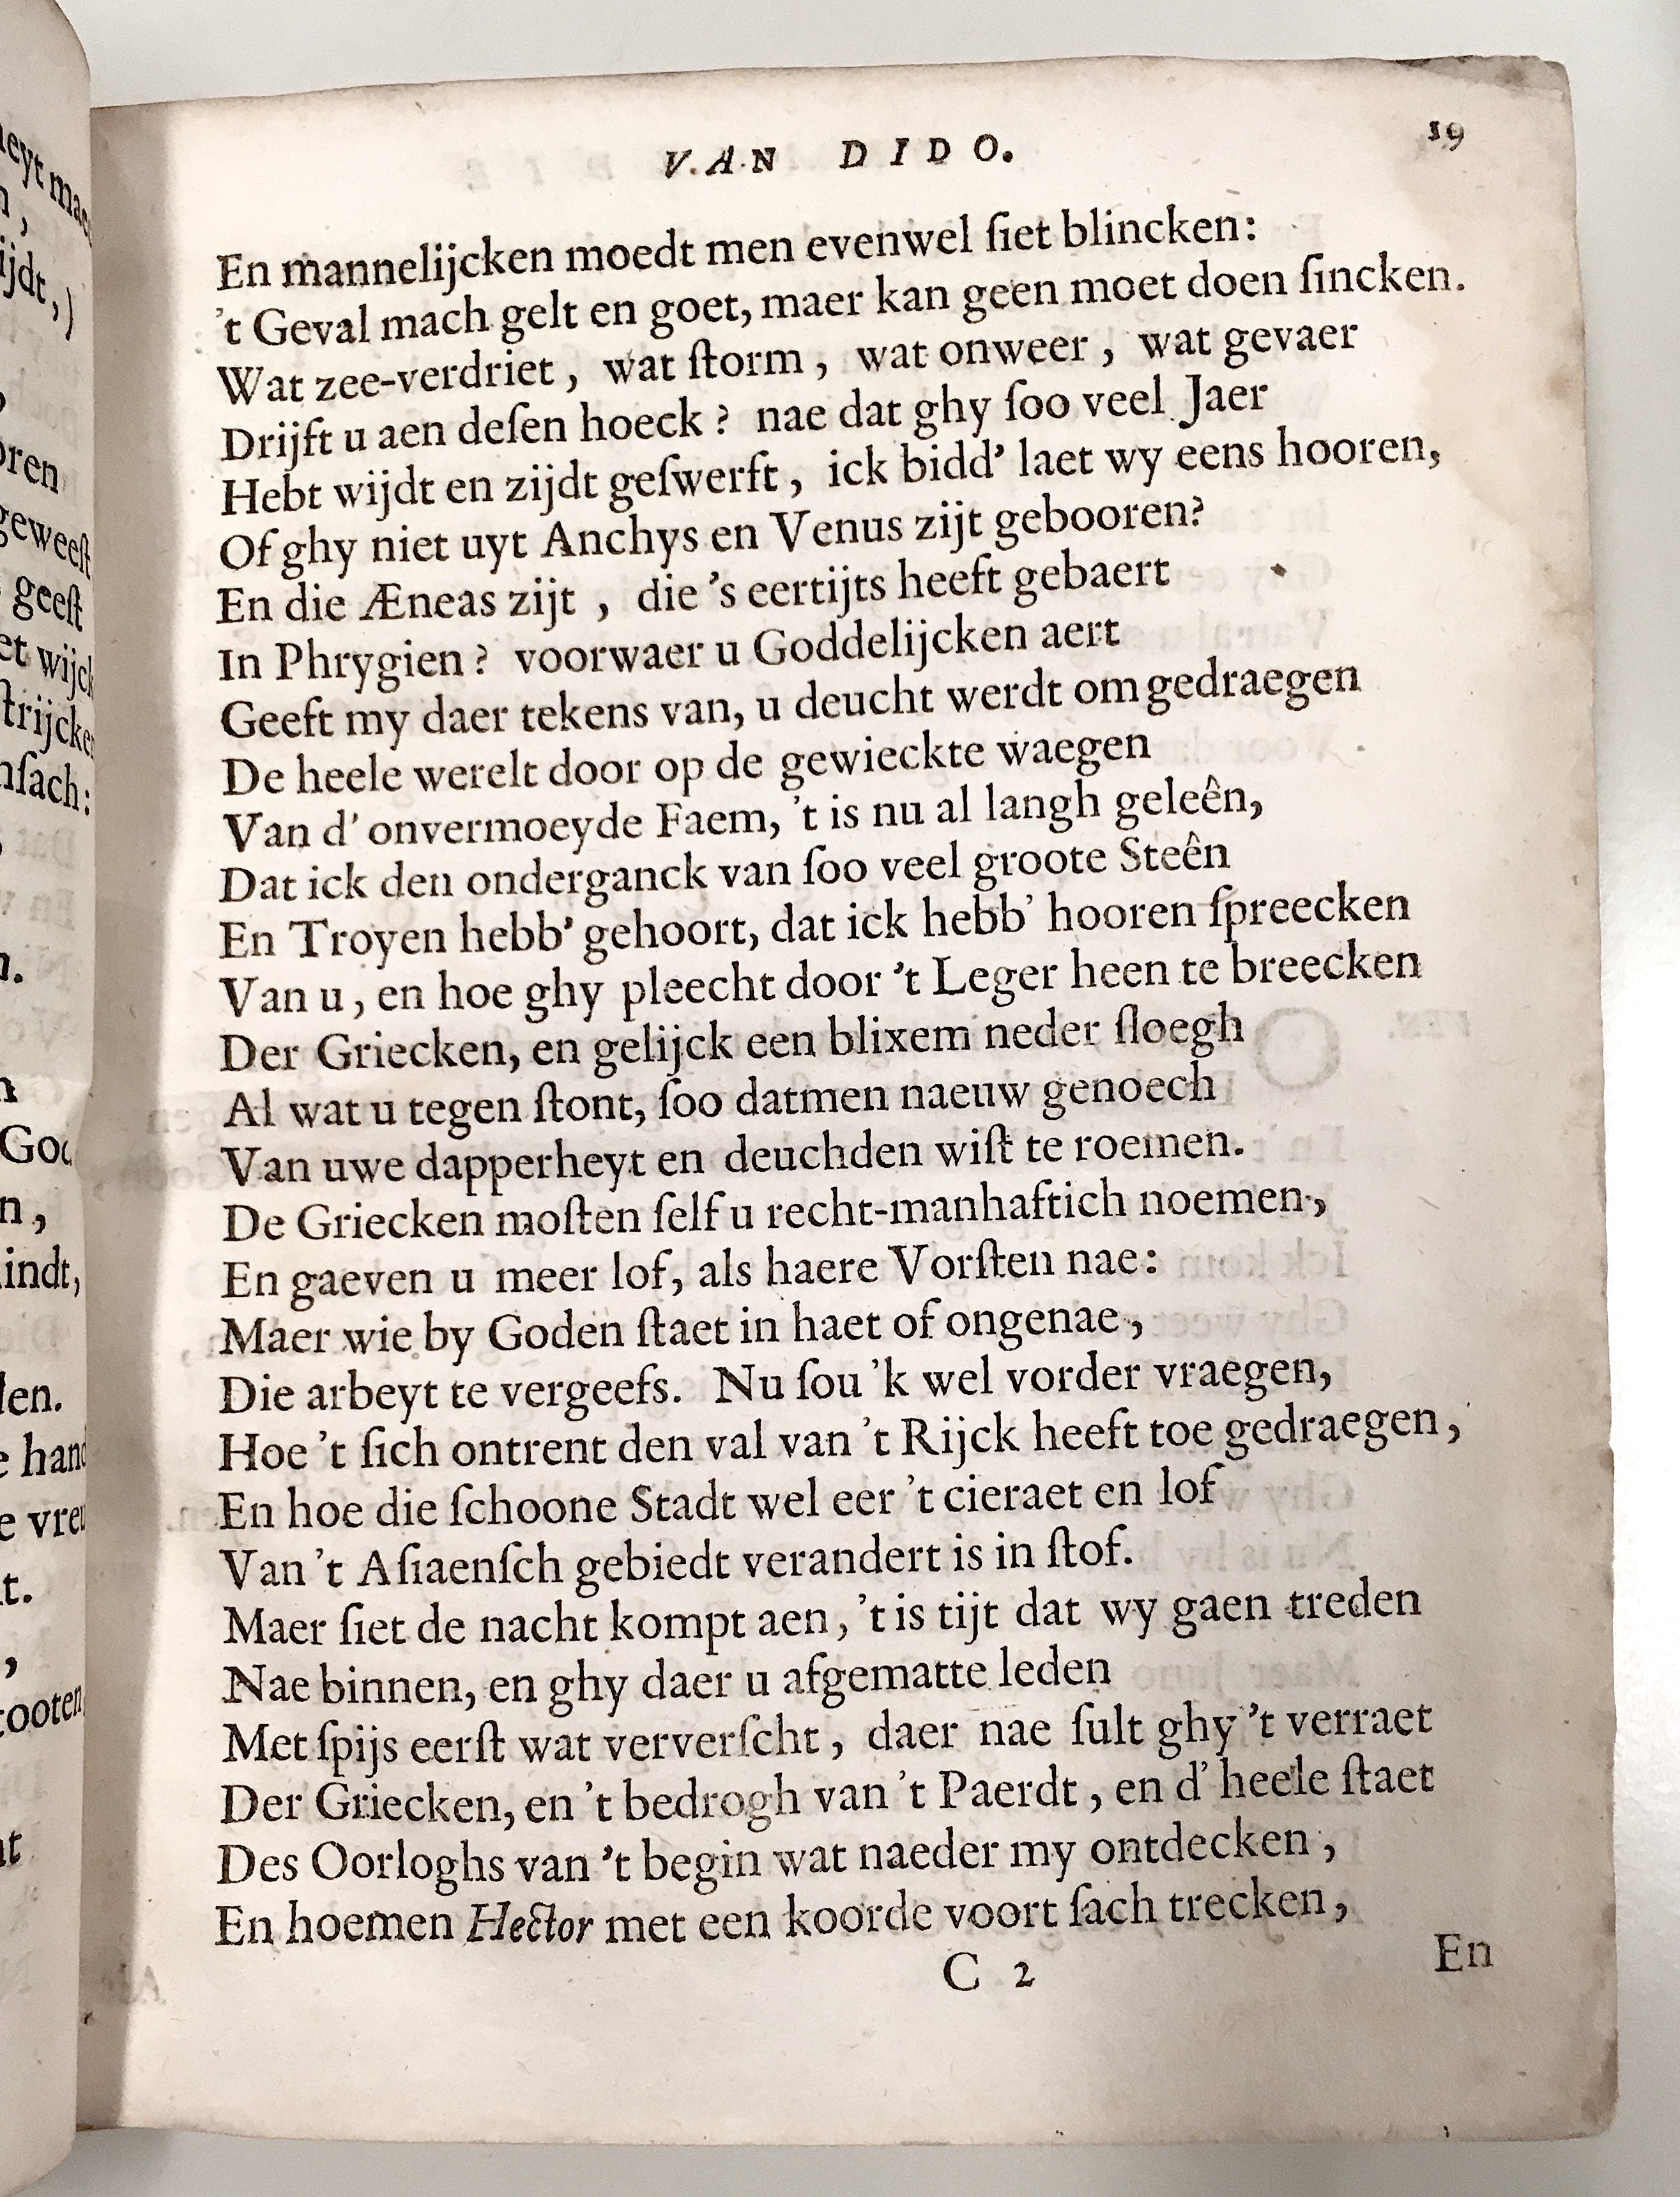 VAN DIDO. 19
En mannelijcken moedt men evenwel ſiet blincken:
't Geval mach gelt en goet, maer kan geen moet doen ſincken.
Wat zee-verdriet, wat ſtorm, wat onweer, wat gevaer
Drijft u aen deſen hoeck? nae dat ghy ſoo veel Jaer
Hebt wijdt en zijdt geſwerft, ick bidd' laet wy eens hooren,
Of ghy niet uyt Anchys en Venus zijt gebooren?
En die Æneas zijt, die 's eertijts heeft gebaert
In Phrygien? voorwaer u Goddelijcken aert
Geeft my daer tekens van, u deucht werdt om gedraegen
De heele werelt door op de gewieckte waegen
Van d' onvermoeyde Faem, 't is nu al langh geleên,
Dat ick den onderganck van ſoo veel groote Steên
En Troyen hebb' gehoort, dat ick hebb' hooren ſpreecken
Van u, en hoe ghy pleecht door 't Leger heen te breecken
Der Griecken, en gelijck een blixem neder ſloegh
Al wat u tegen ſtont, ſoo datmen naeuw genoech
Van uwe dapperheyt en deuchden wiſt te roemen.
De Griecken moſten ſelf u recht-manhaftich noemen,
En gaeven u meer lof, als haere Vorſten nae:
Maer wie by Goden ſtaet in haet of ongenae,
Die arbeyt te vergeefs. Nu ſou 'k wel vorder vraegen,
Hoe 't ſich ontrent den val van 't Rijck heeft toe gedraegen,
En hoe die ſchoone Stadt wel eer 't cieraet en lof
Van 't Aſiaenſch gebiedt verandert is in ſtof.
Maer ſiet de nacht kompt aen, 't is tijt dat wy gaen treden
Nae binnen, en ghy daer u afgematte leden
Met ſpijs eerſt wat ververſcht, daer nae ſult ghy 't verraet
Der Griecken, en 't bedrogh van 't Paerdt, en d' heele ſtaet
Des Oorloghs van 't begin wat naeder my ontdecken,
En hoemen Hector met een koorde voort ſach trecken,
C 2 En